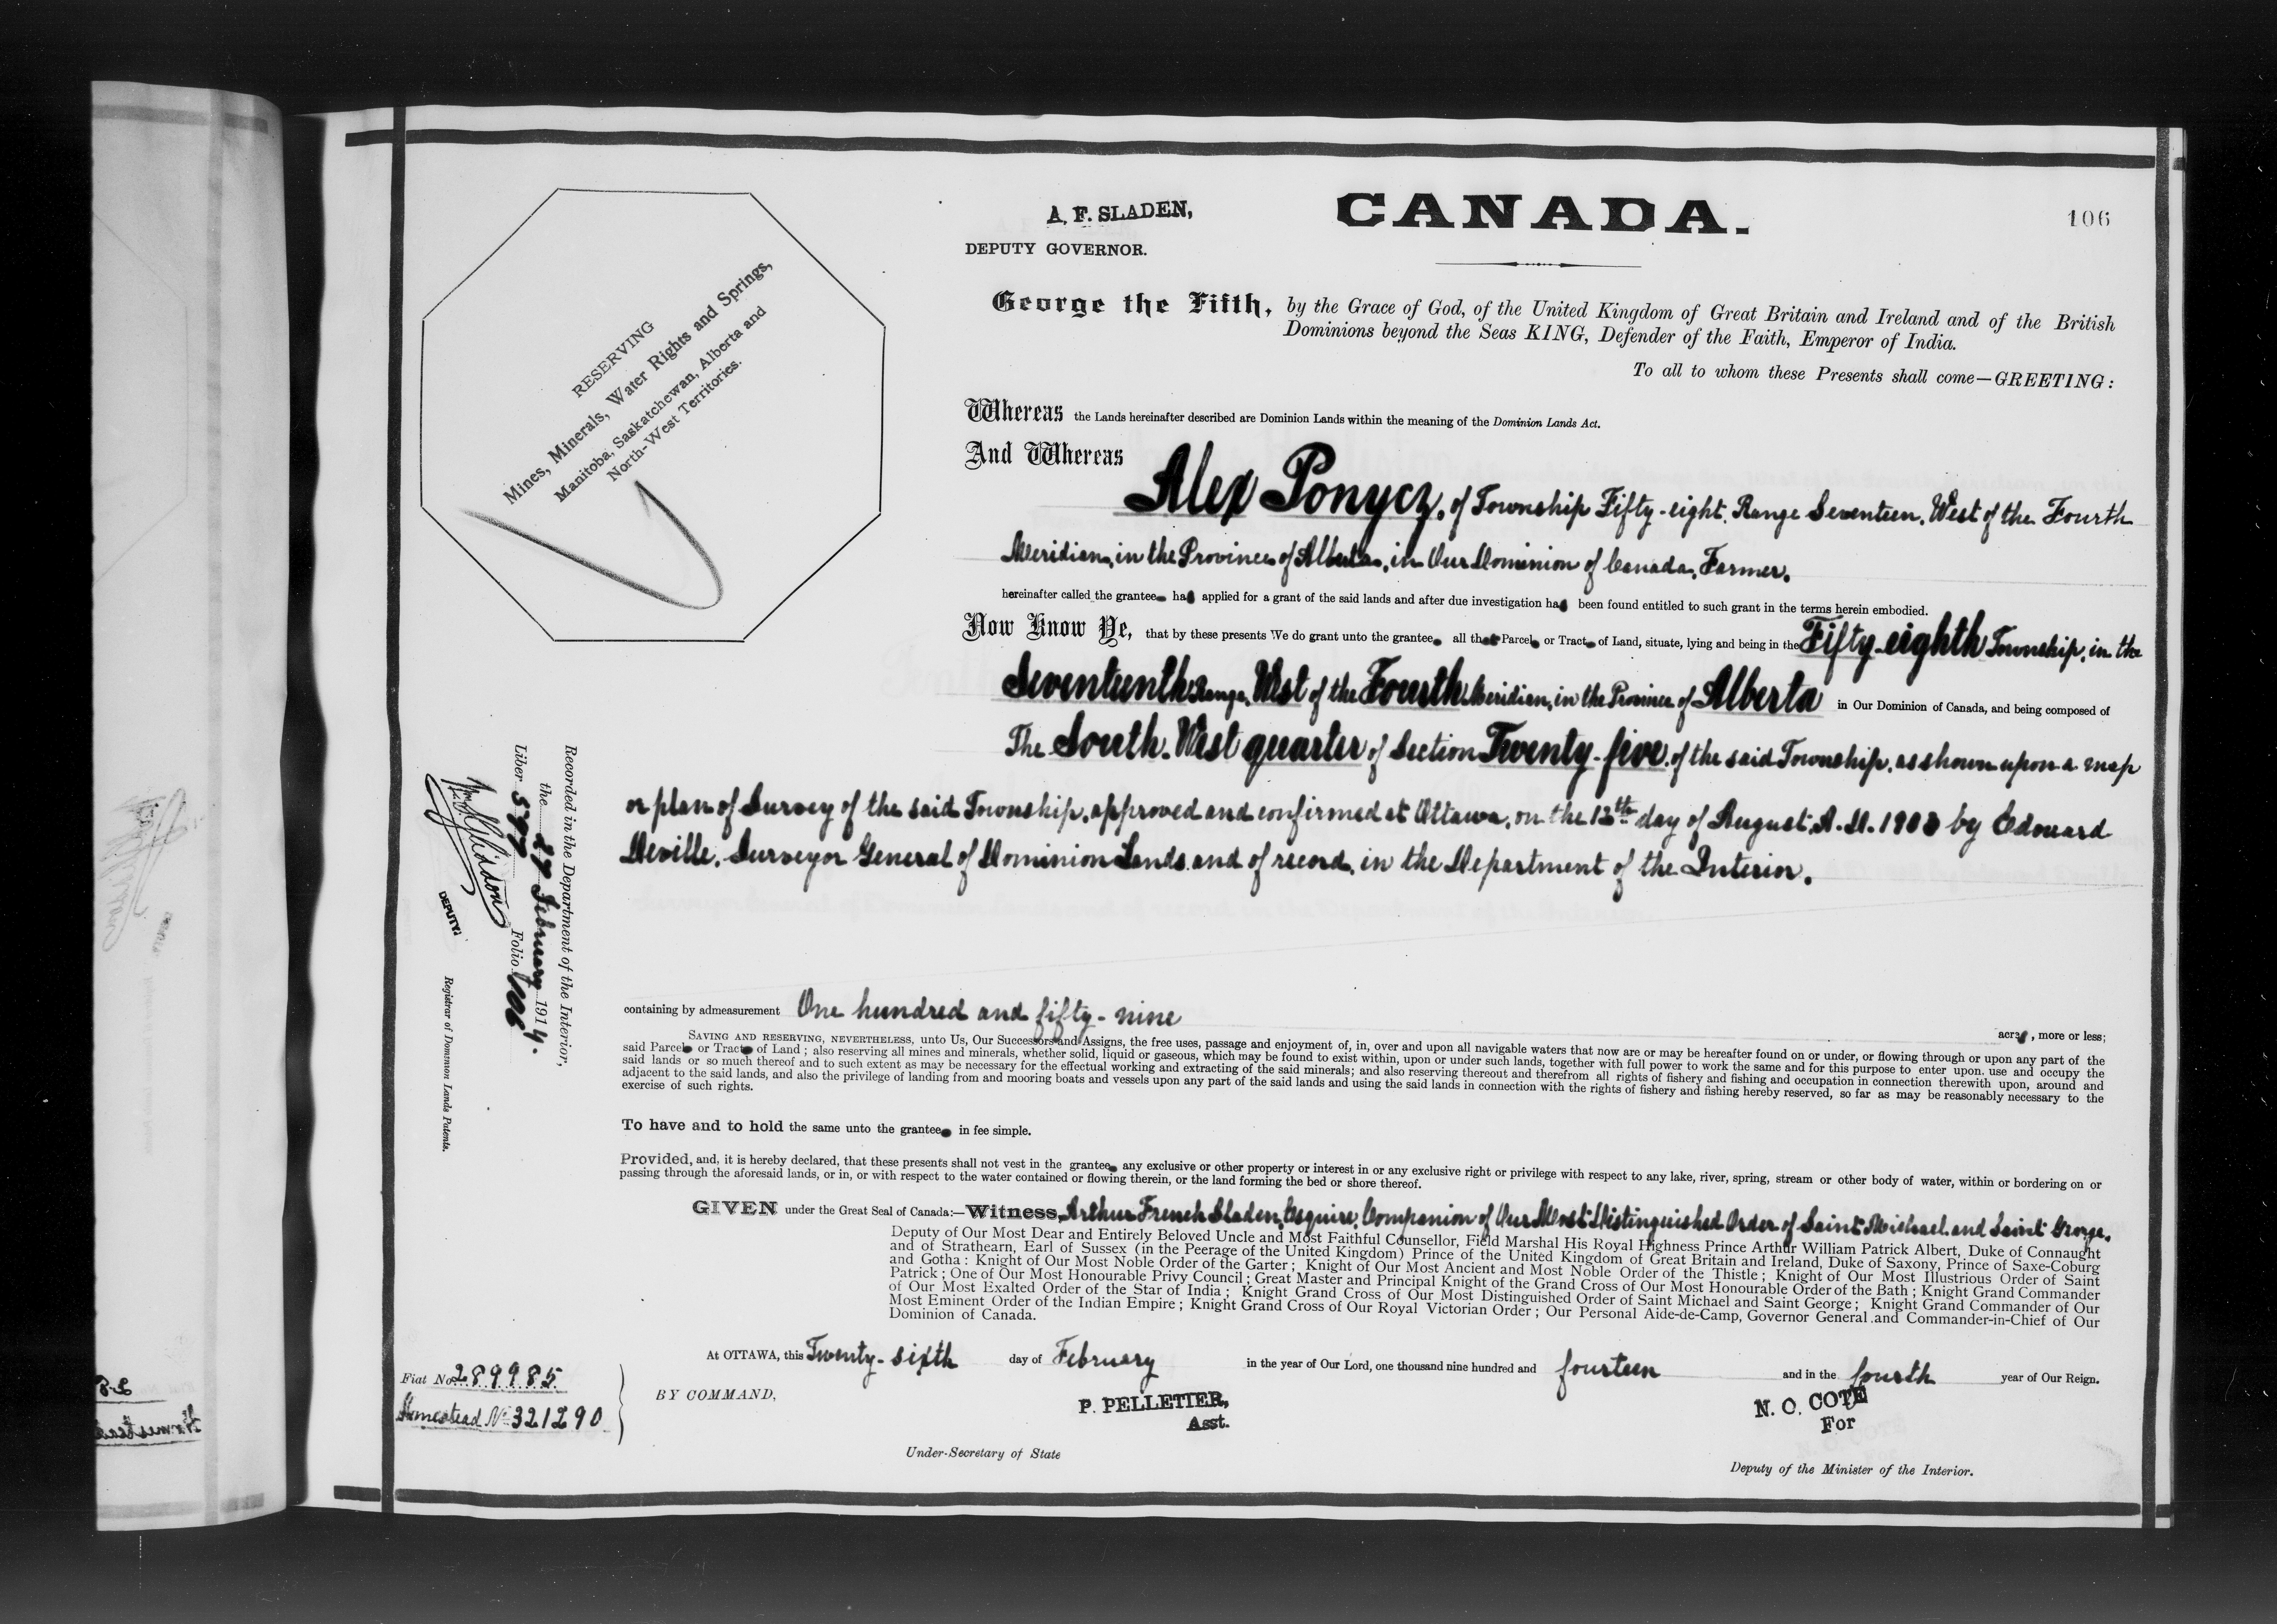 A. F. SLADEN,
DEPUTY GOVERNOR.
CANADA.
106
RESERVING
Mines, Minerals, Water Rights and Springs,
Manitoba, Saskatchewan, Alberta and
North-West Territories.
George the Fifth, by the Grace of God, of the United Kingdom of Great Britain and Ireland and of the British
Dominions beyond the Seas KING, Defender of the Faith, Emperor of India.
To all to whom these Presents shall come—GREETING:
Whereas the Lands hereinafter described are Dominion Lands within the meaning of the Dominion Lands Act.
And Whereas
Alex Ponycz, of Township Fifty-eight, Range Seventeen, West of the Fourth
Meridian, in the Province of Alberta, in Our Dominion of Canada, Farmer,
hereinafter called the grantee has applied for a grant of the said lands and after due investigation has been found entitled to such grant in the terms herein embodied.
Now Know Ye, that by these presents We do grant unto the grantee all that Parcel or Tract of Land, situate, lying and being in the Fifty-eighth Township, in the
Seventeenth Range, West of the Fourth Meridian, in the Province of Alberta in Our Dominion of Canada, and being composed of
The South-West quarter of Section Twenty-five, of the said Township, as shown upon a map
or plan of Survey of the said Township, approved and confirmed at Ottawa, on the 13th day of August, A.D. 1903 by Edouard
Deville, Surveyor General of Dominion Lands and of record, in the Department of the Interior.
containing by admeasurement One hundred and fifty-nine acres, more or less;
SAVING AND RESERVING, NEVERTHELESS, unto Us, Our Successors and Assigns, the free uses, passage and enjoyment of, in, over and upon all navigable waters that now are or may be hereafter found on or under, or flowing through or upon any part of the
said Parcel or Tract of Land; also reserving all mines and minerals, whether solid, liquid or gaseous, which may be found to exist within, upon or under such lands, together with full power to work the same and for this purpose to enter upon, use and occupy the
said lands or so much thereof and to such extent as may be necessary for the effectual working and extracting of the said minerals; and also reserving thereout and therefrom all rights of fishery and fishing and occupation in connection therewith upon, around and
adjacent to the said lands, and also the privilege of landing from and mooring boats and vessels upon any part of the said lands and using the said lands in connection with the rights of fishery and fishing hereby reserved, so far as may be reasonably necessary to the
exercise of such rights.
To have and to hold the same unto the grantee in fee simple.
Provided, and, it is hereby declared, that these presents shall not vest in the grantee any exclusive or other property or interest in or any exclusive right or privilege with respect to any lake, river, spring, stream or other body of water, within or bordering on or
passing through the aforesaid lands, or in, or with respect to the water contained or flowing therein, or the land forming the bed or shore thereof.
GIVEN under the Great Seal of Canada:—Witness, Arthur French Sladen, Esquire, Companion of Our Most Distinguished Order of Saint Michael and Saint George,
Deputy of Our Most Dear and Entirely Beloved Uncle and Most Faithful Counsellor, Field Marshal His Royal Highness Prince Arthur William Patrick Albert, Duke of Connaught
and of Strathearn, Earl of Sussex (in the Peerage of the United Kingdom) Prince of the United Kingdom of Great Britain and Ireland, Duke of Saxony, Prince of Saxe-Coburg
and Gotha: Knight of Our Most Noble Order of the Garter; Knight of Our Most Ancient and Most Noble Order of the Thistle; Knight of Our Most Illustrious Order of Saint
Patrick; One of Our Most Honourable Privy Council; Great Master and Principal Knight of the Grand Cross of Our Most Honourable Order of the Bath; Knight Grand Commander
of Our Most Exalted Order of the Star of India; Knight Grand Cross of Our Most Distinguished Order of Saint Michael and Saint George; Knight Grand Commander of Our
Most Eminent Order of the Indian Empire; Knight Grand Cross of Our Royal Victorian Order; Our Personal Aide-de-Camp, Governor General and Commander-in-Chief of Our
Dominion of Canada.
At OTTAWA, this Twenty-sixth day of February in the year of Our Lord, one thousand nine hundred and fourteen and in the fourth year of Our Reign.
BY COMMAND,
P. PELLETIER,
Asst.
Under-Secretary of State
N. O. COTE
For
Deputy of the Minister of the Interior.
Fiat No. 289985
Homestead No 321290
Recorded in the Department of the Interior,
the 27 February 1914.
Liber 577 Folio 106
DEPUTY
Registrar of Dominion Lands Patents.